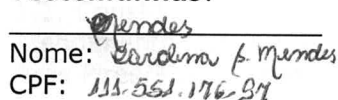 Mendes
Nome: Carolina p. Mendes
CPF: 111.551.176-97